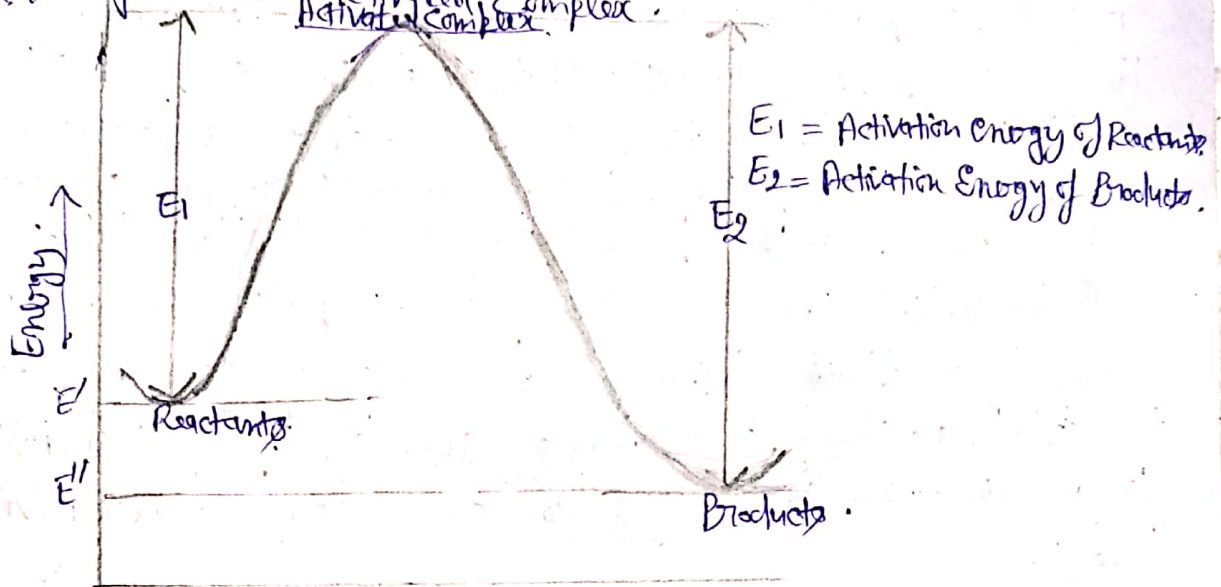 Activated Complex.
Complex.
E1 = Activation Energy of Reactants.
E2 = Activation Energy of Products.
E1
E2
Energy.
E'
Reactants.
E"
Products.